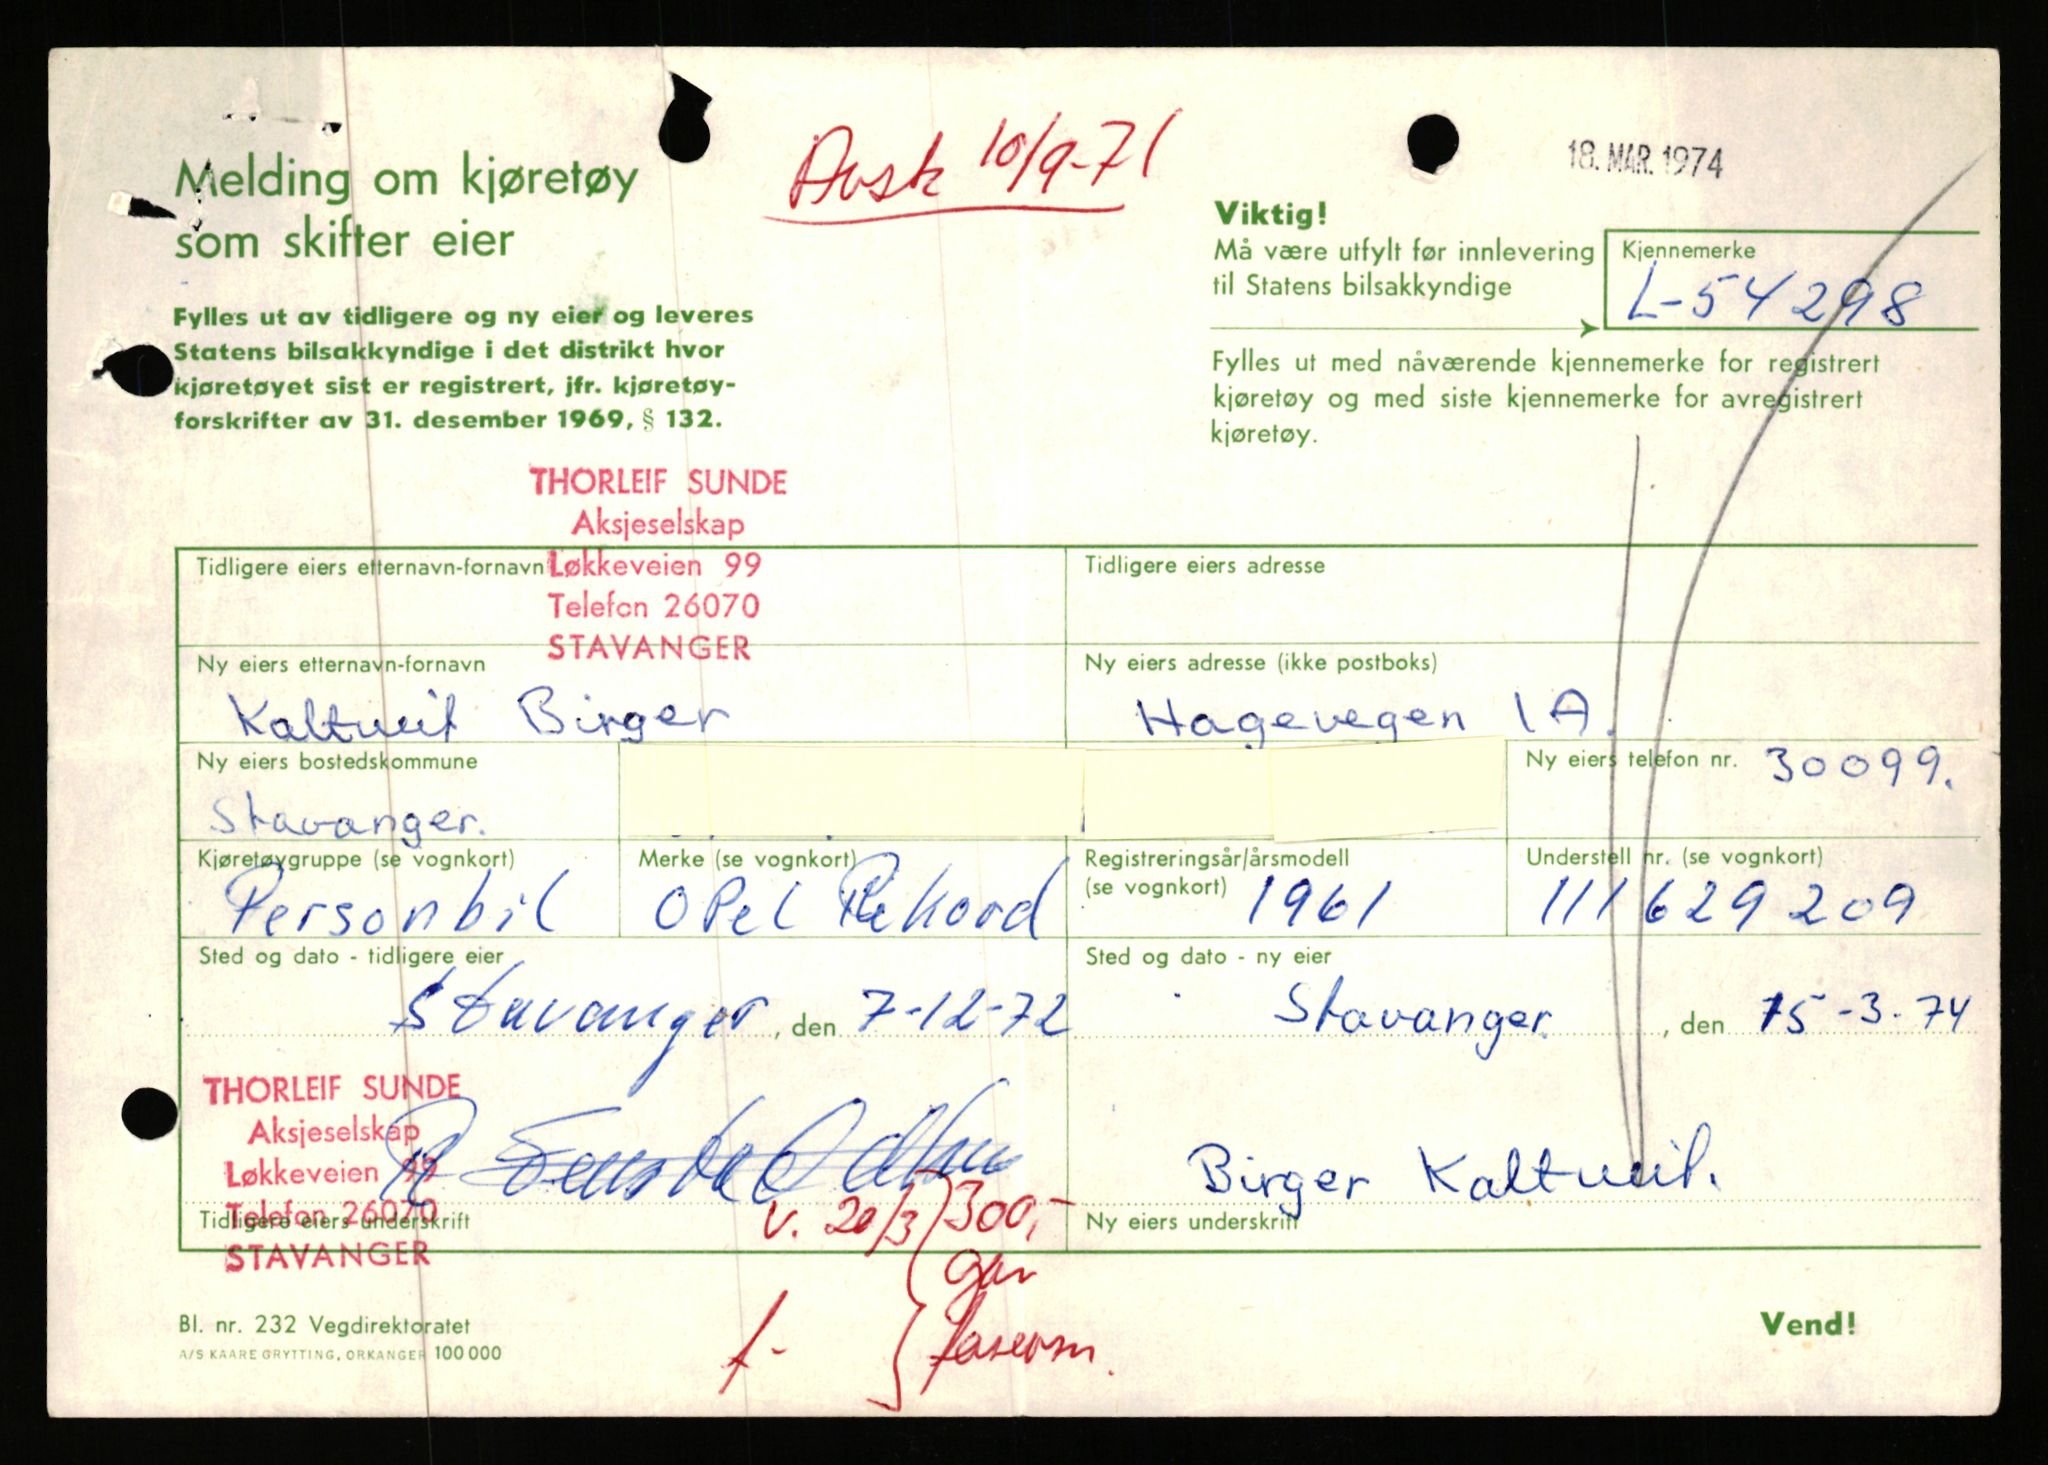 Melding om kjøretøy
som skifter eier
Avsk 10/9-71
18. MAR. 1974
Viktig!
Må være utfylt før innlevering
til Statens bilsakkyndige
Kjennemerke
L-54298
Fylles ut av tidligere og ny eier og leveres
Statens bilsakkyndige i det distrikt hvor
kjøretøyet sist er registrert, jfr. kjøretøy-
forskrifter av 31. desember 1969, § 132.
Fylles ut med nåværende kjennemerke for registrert
kjøretøy og med siste kjennemerke for avregistrert
kjøretøy.
THORLEIF SUNDE
Aksjeselskap
Løkkeveien 99
Telefon 26070
STAVANGER
Tidligere eiers etternavn-fornavn
Tidligere eiers adresse
Ny eiers etternavn-fornavn
Kaltveit Birger
Ny eiers adresse (ikke postboks)
Hagevegen 1A.
Ny eiers bostedskommune
Stavanger.
Ny eiers telefon nr. 30099.
Kjøretøygruppe (se vognkort)
Personbil
Merke (se vognkort)
OPel Rekord
Registreringsår/årsmodell
(se vognkort) 1961
Understell nr. (se vognkort)
111629209
Sted og dato - tidligere eier
Stavanger, den 7-12-72
Sted og dato - ny eier
Stavanger., den 15-3-74
THORLEIF SUNDE
Aksjeselskap
Løkkeveien 99
Telefon 26070
STAVANGER
Tidligere eiers underskrift
Birger Kaltveit.
Ny eiers underskrift
v. 20/3 300,-
Bl. nr. 232 Vegdirektoratet
A/S KAARE GRYTTING, ORKANGER 100 000
Vend!